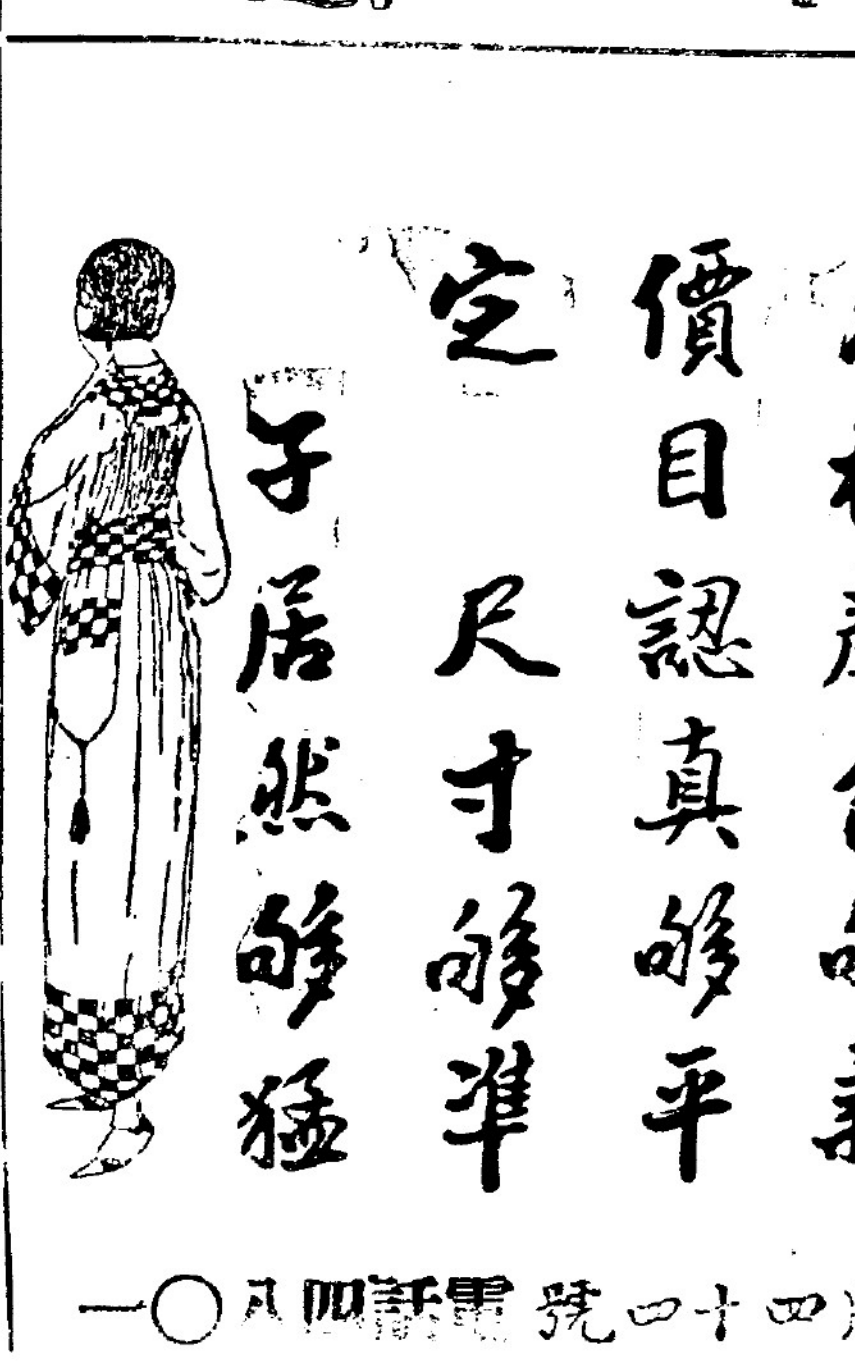 價目認真够平
定 尺寸够準
子居然够猛
四十四號 電話四八〇一